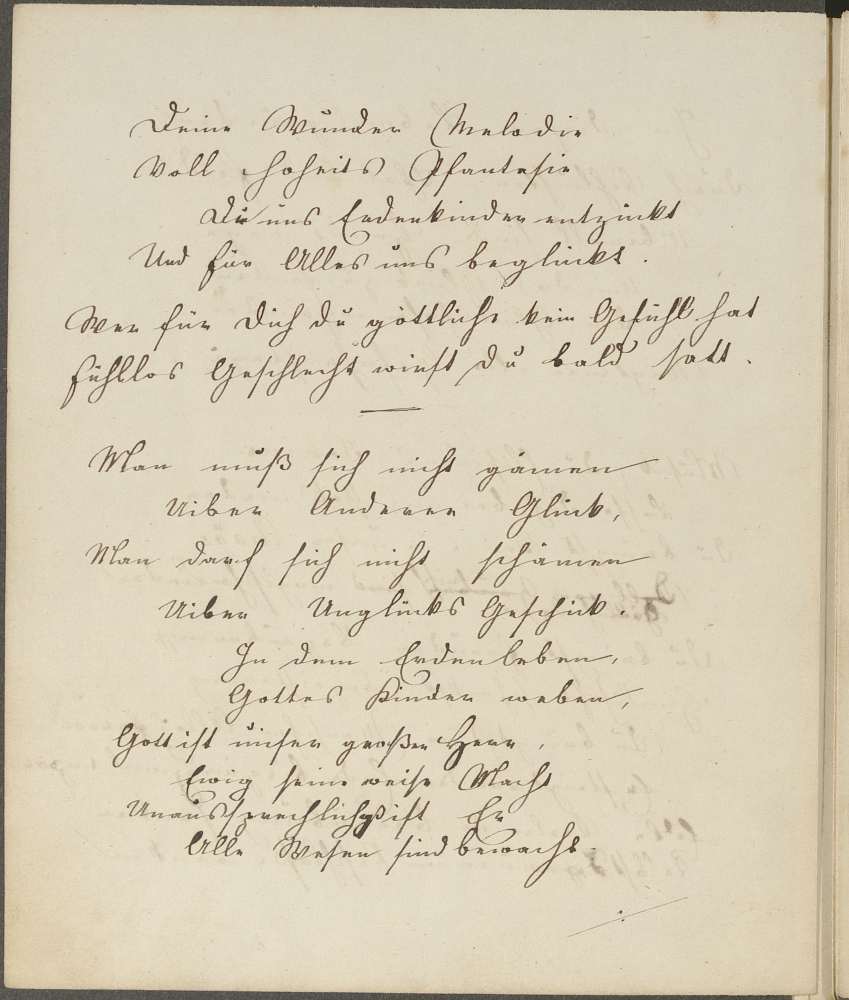 Deine Wunder Melodie
Voll Hoheits Pfantasie
Die uns Erdenkinder entzückt
Und für Alles uns beglückt.
Wer für Dich du göttliche kein Gefühl hat
Fühllos Geschlecht wirst du bald satt.
Man muß sich nicht gämen
Uiber Anderer Glück,
Man darf sich nicht schämen
Uiber Unglücks Geschick.
In dem Erdenleben,
Gottes Kinder weben,
Gott ist unser großer Herr,
Ewig seine weise Macht
Unaussprechlich ist Er
Alle Wesen sind bewacht.